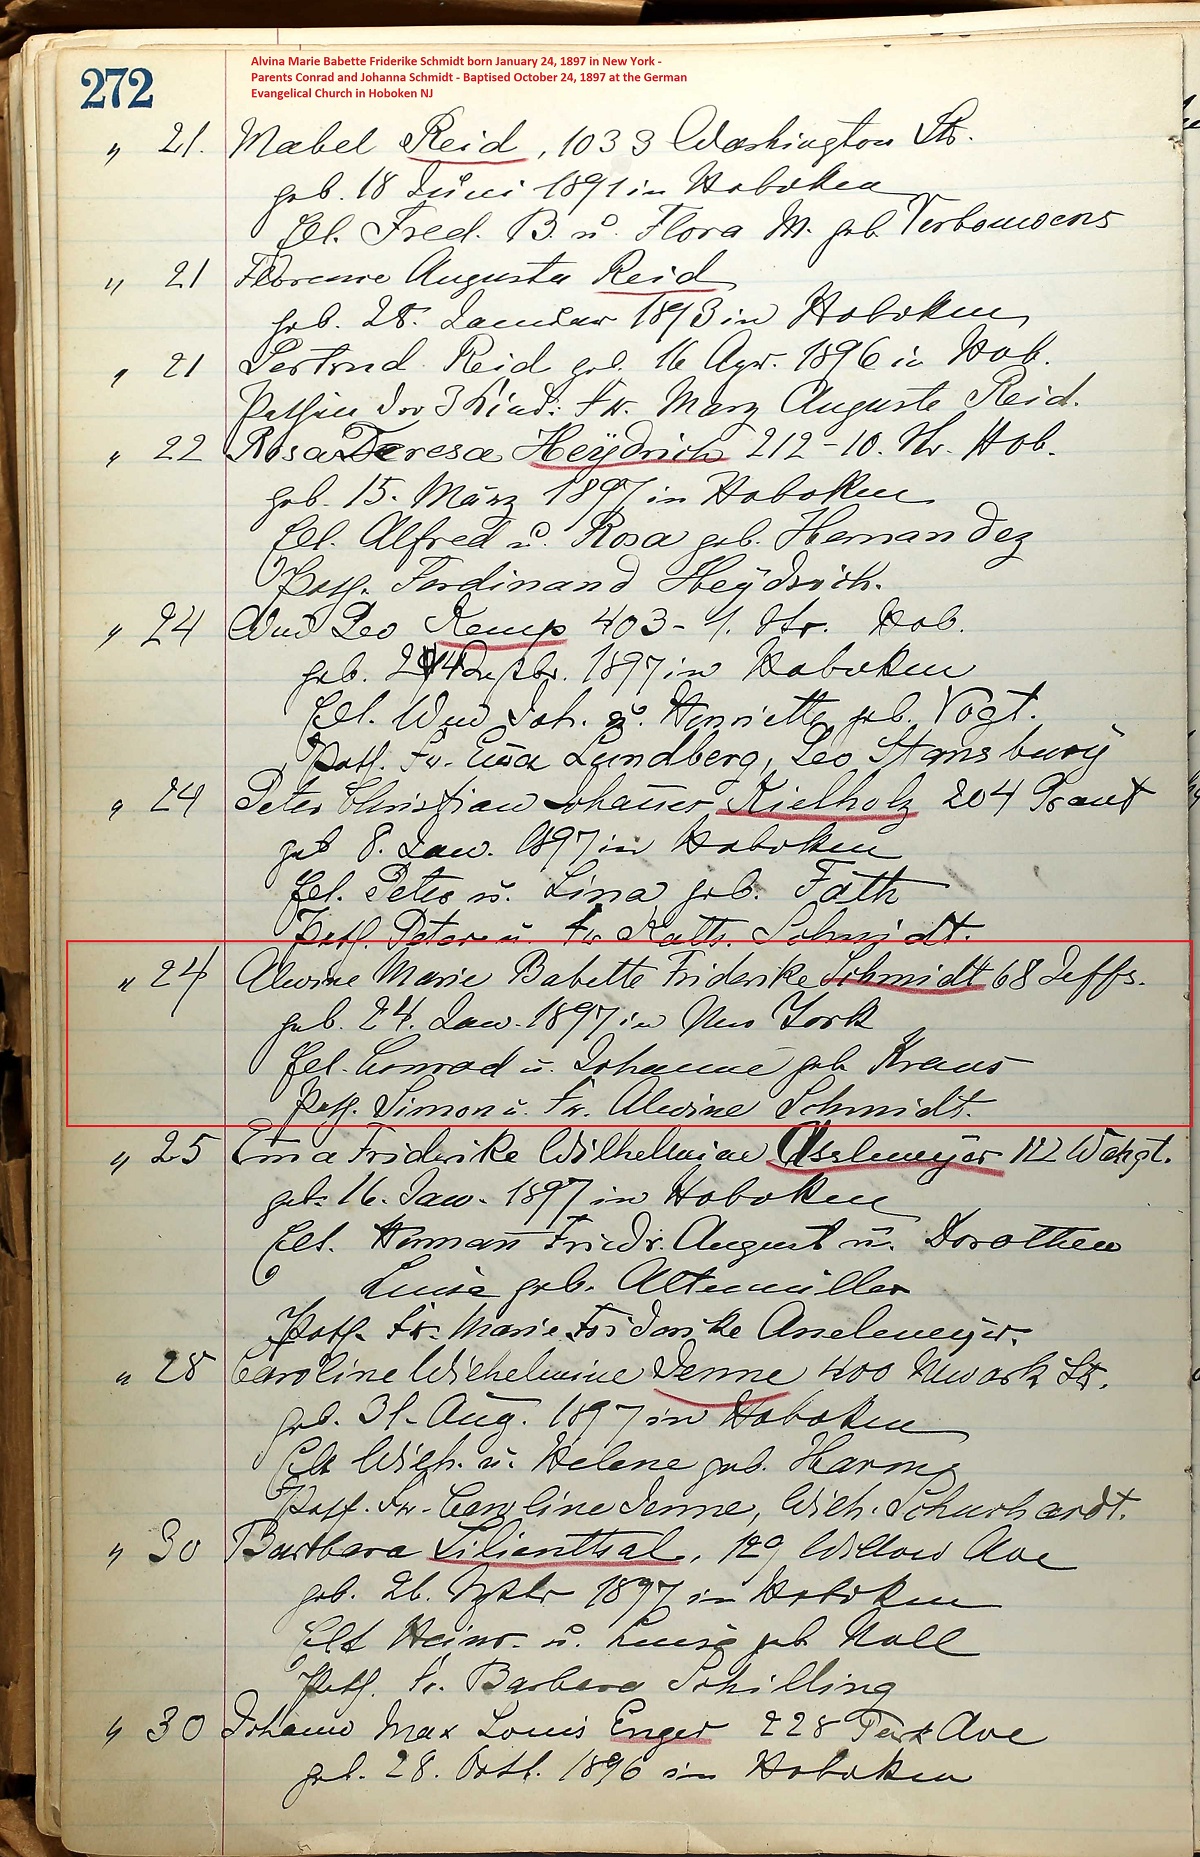 272
Alvina Marie Babette Friderike Schmidt born January 24, 1897 in New York -
Parents Conrad and Johanna Schmidt - Baptised October 24, 1897 at the German
Evangelical Church in Hoboken NJ
" 21. Mabel Reid, 1033 Washington Str.
geb. 18 Juni 1891 in Hoboken
Elt. Fred. B. u. Flora M. geb.
" 21 Florence Augusta Reid
geb. 28. Januar 1893 in Hoboken
" 21 Gertrud Reid geb. 16 Apr. 1896 in Hob.
Pathin der 3 Kind: Fr. Mary Auguste Reid.
" 22 Rosa Teresa Heÿdrich 212-10. Str. Hob.
geb. 15. März 1897 in Hoboken
Elt. Alfred u. Rosa geb. Hernandez
Path. Ferdinand Heÿdrich.
" 24 Wm Leo Kemp 403-1. Str. Hob.
geb. 1897 in Hoboken
Elt. Wm Joh. u. Henriette geb. Vogt.
Path. Fr. Lundberg, Leo Stansbury
" 24 Peter Christian Johannes Kielholz 204 Grant
geb 8. Jan. 1897 in Hoboken
Elt. Peter u. Lina geb. Fath
Path. Peter u. Fr Kath. Schmidt.
" 24 Alwine Marie Babette Friderike Schmidt 68 Jeffs.
geb. 24. Jan. 1897 in New York
Elt. Conrad u. Johanne geb Kraus
Path. Simon u. Fr. Alwine Schmidt.
" 25 Em̄a Friderike Wilhelmine Asselmeÿer 122 Washgt.
geb. 16. Jan. 1897 in Hoboken
Elt. Herman̄ Friedr. August u. Dorothea
Luise geb. Altemüller
Path. Fr. Marie Friderike Asselmeÿer.
" 28 Caroline Wilhelmine Denne 400 Newark Str.
geb. 31. Aug. 1897 in Hoboken
Elt Wilh. u. Helene geb. Harms
Path. Fr. Caroline Denne, Wilh. Schuchardt.
" 30 Barbara Lilienthal, 129 Willow Ave
geb. 26. Sptbr 1897 in Hoboken
Elt Heinr. u. Luise geb Noll
Path. Fr. Barbara Schilling
" 30 Johann Max Louis Enger 228 Park Ave
geb. 28. Octb. 1896 in Hoboken